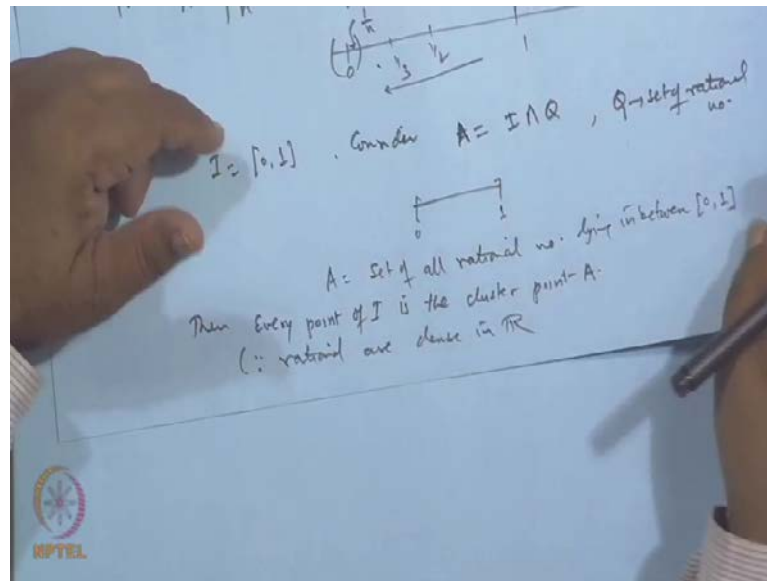 1/n
0 1/3 1/2 1
I = [0,1] . Consider A = I ∩ Q , Q → set of rational no.
0 1
A = Set of all rational no. lying in between [0,1]
Then Every point of I is the cluster point A.
(∵ rational are dense in ℝ
NPTEL